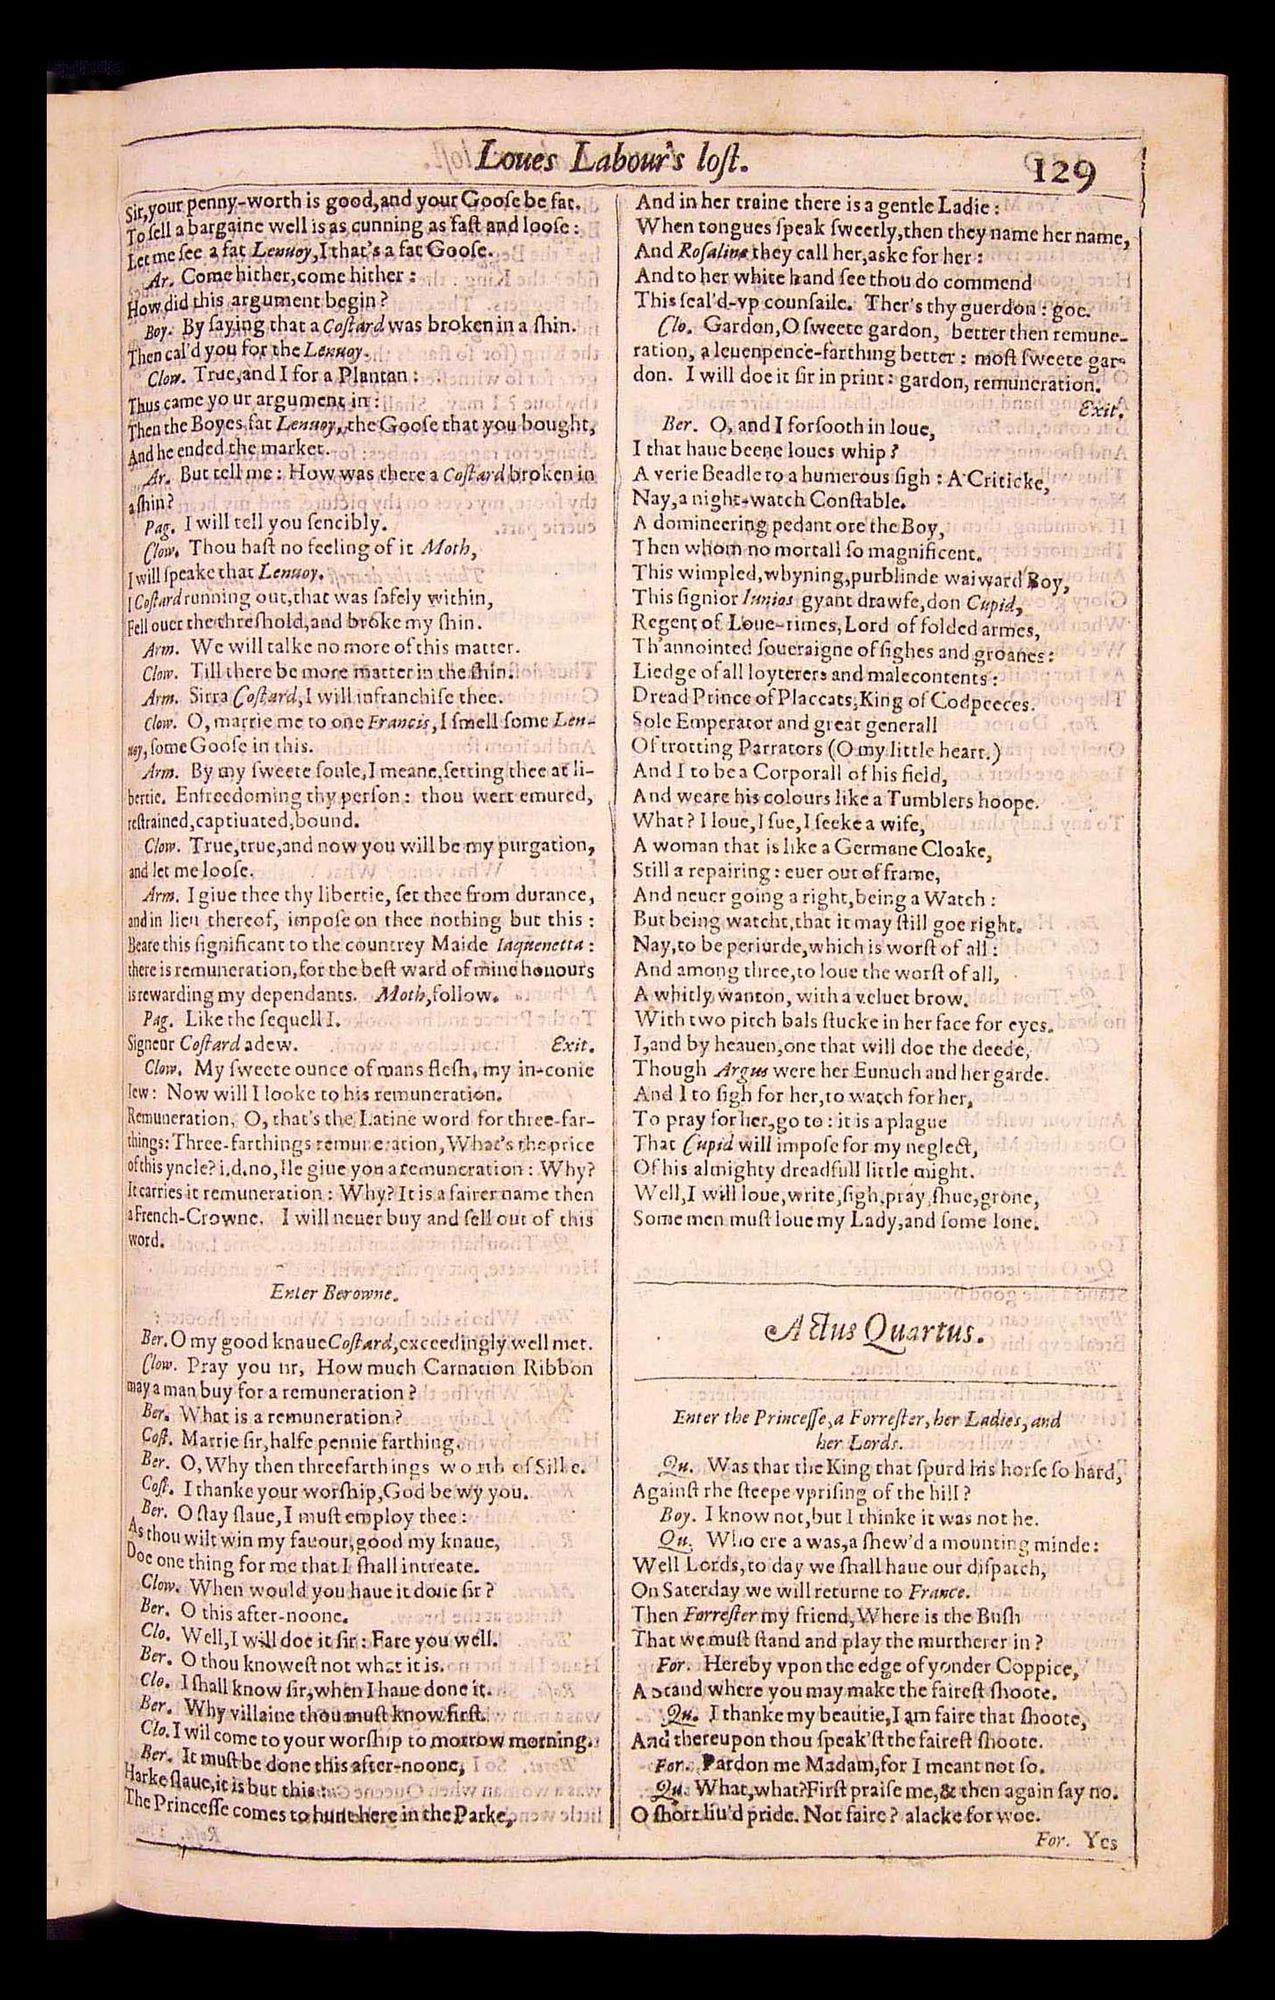 Loues Labour's lost.
129
Sir, your penny-worth is good, and your Goose be fat.
To sell a bargaine well is as cunning as fast and loose:
Let me see a fat Lenuoy, I that's a fat Goose.
Ar. Come hither, come hither:
How did this argument begin?
Boy. By saying that a Costard was broken in a shin.
Then cal'd you for the Lenuoy.
Clow. True, and I for a Plantan:
Thus came yo ur argument in:
Then the Boyes fat Lenuoy, the Goose that you bought,
And he ended the market.
Ar. But tell me: How was there a Costard broken in
a shin?
Pag. I will tell you sencibly.
Clow. Thou hast no feeling of it Moth,
I will speake that Lenuoy.
I Costard running out, that was safely within,
Fell ouer the threshold, and broke my shin.
Arm. We will talke no more of this matter.
Clow. Till there be more matter in the shin.
Arm. Sirra Costard, I will infranchise thee.
Clow. O, marrie me to one Francis, I smell some Len-
uoy, some Goose in this.
Arm. By my sweete soule, I meane, setting thee at li-
bertie. Enfreedoming thy person: thou wert emured,
restrained, captiuated, bound.
Clow. True, true, and now you will be my purgation,
and let me loose.
Arm. I giue thee thy libertie, set thee from durance,
and in lieu thereof, impose on thee nothing but this:
Beare this significant to the countrey Maide Iaquenetta:
there is remuneration, for the best ward of mine honours
is rewarding my dependants. Moth, follow.
Pag. Like the sequell I.
Signeur Costard adew. Exit.
Clow. My sweete ounce of mans flesh, my in-conie
Iew: Now will I looke to his remuneration.
Remuneration, O, that's the Latine word for three-far-
things: Three-farthings remuneration, What's the price
of this yncle? i.d. no, Ile giue you a remuneration: Why?
It carries it remuneration: Why? It is a fairer name then
a French-Crowne. I will neuer buy and sell out of this
word.
Enter Berowne.
Ber. O my good knaue Costard, exceedingly well met.
Clow. Pray you sir, How much Carnation Ribbon
may a man buy for a remuneration?
Ber. What is a remuneration?
Cost. Marrie sir, halfe pennie farthing.
Ber. O, Why then threefarthings worth of Silke.
Cost. I thanke your worship, God be wy you.
Ber. O stay slaue, I must employ thee:
As thou wilt win my fauour, good my knaue,
Doe one thing for me that I shall intreate.
Clow. When would you haue it done sir?
Ber. O this after-noone.
Clo. Well, I will doe it sir: Fare you well.
Ber. O thou knowest not what it is.
Clo. I shall know sir, when I haue done it.
Ber. Why villaine thou must know first.
Clo. I wil come to your worship to morrow morning.
Ber. It must be done this after-noone,
Harke slaue, it is but this:
The Princesse comes to hunt here in the Parke,
And in her traine there is a gentle Ladie:
When tongues speak sweetly, then they name her name,
And Rosaline they call her, aske for her:
And to her white hand see thou do commend
This seal'd-vp counsaile. Ther's thy guerdon: goe.
Clo. Gardon, O sweete gardon, better then remune-
ration, a leuenpence-farthing better: most sweete gar-
don. I will doe it sir in print: gardon, remuneration.
Exit.
Ber. O, and I forsooth in loue,
I that haue beene loues whip?
A verie Beadle to a humerous sigh: A Criticke,
Nay, a night-watch Constable.
A domineering pedant ore the Boy,
Then whom no mortall so magnificent.
This wimpled, whyning, purblinde waiward Boy,
This signior Iunios gyant drawfe, don Cupid,
Regent of Loue-rimes, Lord of folded armes,
Th'annointed soueraigne of sighes and groanes:
Liedge of all loyterers and malecontents:
Dread Prince of Placcats, King of Codpeeces.
Sole Emperator and great generall
Of trotting Parrators (O my little heart.)
And I to be a Corporall of his field,
And weare his colours like a Tumblers hoope.
What? I loue, I sue, I seeke a wife,
A woman that is like a Germane Cloake,
Still a repairing: euer out of frame,
And neuer going a right, being a Watch:
But being watcht, that it may still goe right.
Nay, to be periurde, which is worst of all:
And among three, to loue the worst of all,
A whitly wanton, with a veluet brow.
With two pitch bals stucke in her face for eyes.
I, and by heauen, one that will doe the deede,
Though Argus were her Eunuch and her garde.
And I to sigh for her, to watch for her,
To pray for her, go to: it is a plague
That Cupid will impose for my neglect,
Of his almighty dreadfull little might.
Well, I will loue, write, sigh, pray, shue, grone,
Some men must loue my Lady, and some Ione.
Actus Quartus.
Enter the Princesse, a Forrester, her Ladies, and
her Lords.
Qu. Was that the King that spurd his horse so hard,
Against the steepe vprising of the hill?
Boy. I know not, but I thinke it was not he.
Qu. Who ere a was, a shew'd a mounting minde:
Well Lords, to day we shall haue our dispatch,
On Saterday we will returne to France.
Then Forrester my friend, Where is the Bush
That we must stand and play the murtherer in?
For. Hereby vpon the edge of yonder Coppice,
A stand where you may make the fairest shoote.
Qu. I thanke my beautie, I am faire that shoote,
And thereupon thou speak'st the fairest shoote.
For. Pardon me Madam, for I meant not so.
Qu. What, what? First praise me, & then again say no.
O short liu'd pride. Not faire? alacke for woe.
For. Yes